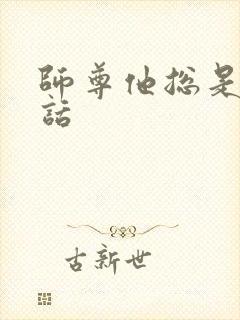 師尊他總是
話
古新世